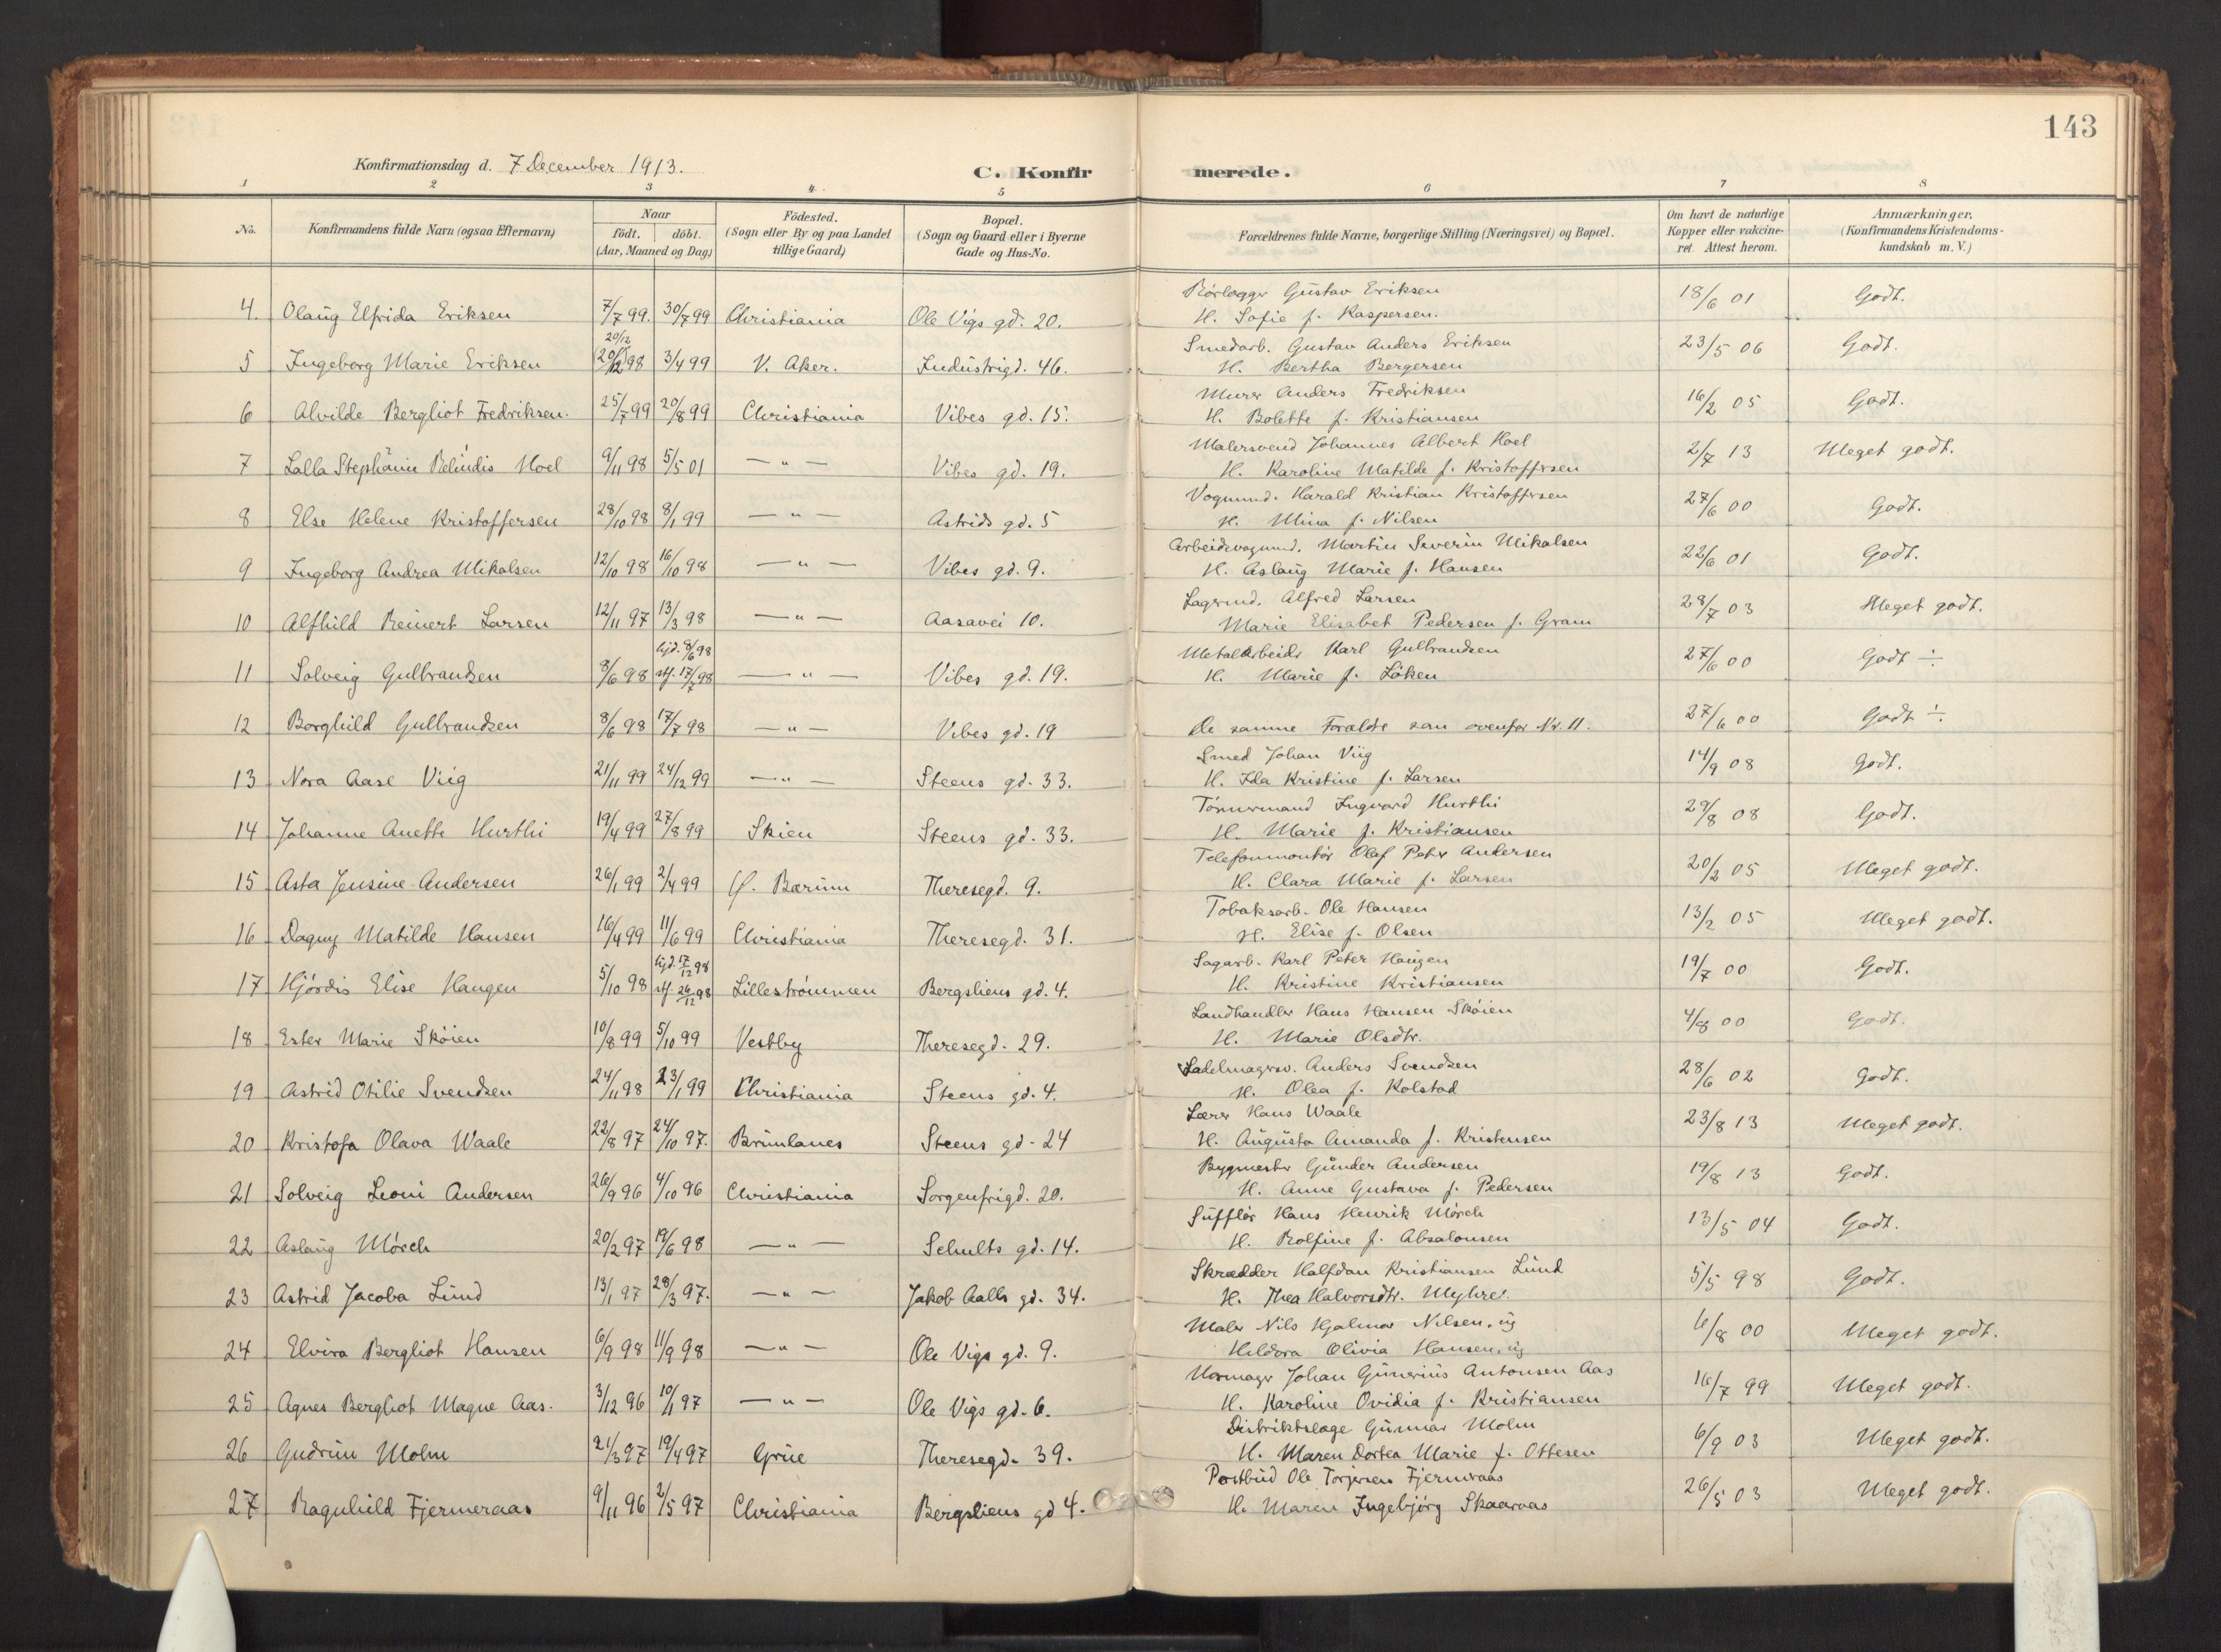 143
Konfirmationsdag d. 7 December 1913.
C. Konfirmerede.
1 2 3 4 5 6 7 8
No.
Konfirmandens fulde Navn (ogsaa Efternavn)
Naar
födt. döbt.
(Aar, Maaned og Dag)
Födested.
(Sogn eller By og paa Landet
tillige Gaard)
Bopæl.
(Sogn og Gaard eller i Byerne
Gade og Hus-No.
Forældrenes fulde Navne, borgerlige Stilling (Næringsvei) og Bopæl.
Om havt de naturlige
Kopper eller vakcine-
ret. Attest herom.
Anmærkninger.
(Konfirmandens Kristendoms-
kundskab m. V.)
Rörlægger Gustav Eriksen
4. Olaug Elfrida Eriksen 7/7 99. 30/7 99 Christiania Ole Vigs gd. 20. H. Sofie f. Kaspersen. 18/6 01 Godt.
20/12
Smedarb. Gustav Anders Eriksen
5 Ingeborg Marie Eriksen (20/12) 98 3/4 99 V. Aker. Industrigd. 46. H. Bertha Bergersen 23/5 06 Godt.
Murer Anders Fredriksen
6 Alvilde Bergliot Fredriksen. 25/7 99 20/8 99 Christiania Vibes gd. 15. H. Bolette f. Kristiansen 16/2 05 Godt.
Malersvend Johannes Albert Hoel
7 Lalla Stephanie Belindis Hoel 9/11 98 5/5 01 — " — Vibes gd. 19. H. Karoline Matilde f. Kristoffersen 2/7 13 Meget godt.
Vognmd. Harald Kristian Kristoffersen
8 Else Helene Kristoffersen 28/10 98 8/1 99 — " — Astrids gd. 5 H. Mina f. Nilsen 27/6 00 Godt.
Arbeidsvognmd. Martin Severin Mikalsen
9 Ingeborg Andrea Mikalsen 12/10 98 16/10 98 — " — Vibes gd. 9. H. Aslaug Marie f. Hansen 22/6 01 Godt.
Lagermd. Alfred Larsen
10 Alfhild Reinert Larsen 12/11 97 13/3 98 — " — Aasavei 10. Marie Elisabet Pedersen f. Gram 28/7 03 Meget godt.
hjd. 8/6 98
Metalarbeider Karl Gulbrandsen
11 Solveig Gulbrandsen 8/6 98 stf. 17/7 98 — " — Vibes gd. 19. H. Marie f. Löken 27/6 00 Godt ÷
12 Borghild Gulbrandsen 8/6 98 17/7 98 — " — Vibes gd. 19 De samme Forældre som ovenfor Nr. 11. 27/6 00 Godt ÷.
Smed Johan Viig
13 Nora Aase Viig 21/11 99 24/12 99 — " — Steens gd. 33. H. Ida Kristine f. Larsen 14/9 08 Godt.
Tömmermand Ingvard Hurthi
14 Johanne Anette Hurthi 19/4 99 27/8 99 Skien Steens gd. 33. H. Marie f. Kristiansen 29/8 08 Godt.
Telefonmontör Olaf Peter Andersen
15 Asta Jensine Andersen 26/1 99 2/4 99 Ø. Bærum Theresegd. 9. H. Clara Marie f. Larsen 20/2 05 Meget godt.
Tobaksarb. Ole Hansen
16 Dagny Matilde Hansen 16/4 99 11/6 99 Christiania Theresegd. 31. H. Elise f. Olsen 13/2 05 Meget godt.
hjd. 17/12 98
Sagarb. Karl Peter Haugen
17 Hjördis Elise Haugen 5/10 98 stf. 26/12 98 Lilleströmmen Bergsliens gd. 4. H. Kristine Kristiansen 19/7 00 Godt.
Landhandler Hans Hansen Skøien
18 Ester Marie Skøien 10/8 99 5/10 99 Vestby Theresegd. 29. H. Marie Olsdtr. 4/8 00 Godt.
Sadelmagersv. Anders Svendsen
19 Astrid Otilie Svendsen 24/11 98 23/1 99 Christiania Steens gd. 4. H. Olea f. Kolstad 28/6 02 Godt.
Lærer Hans Waale
20 Kristofa Olava Waale 22/8 97 24/10 97. Brunlanes Steens gd. 24 H. Augusta Amanda f. Kristensen 23/8 13 Meget godt.
Bygmester Gunder Andersen
21 Solveig Leoni Andersen 26/9 96 4/10 96 Christiania Sorgenfrigd. 20. H. Anne Gustava f. Pedersen 19/8 13 Godt.
Sufflör Hans Henrik Mörch
22 Aslaug Mörch 20/2 97 19/6 98 — " — Schults gd. 14. H. Rolfine f. Absalonsen 13/5 04 Godt.
Skrædder Halfdan Kristiansen Lund
23 Astrid Jacoba Lund 13/1 97 28/3 97. — " — Jakob Aalls gd. 34. H. Thea Halvorsdtr. Myhre. 5/5 98 Godt.
Maler Nils Hjalmar Nilsen, ug
24 Elvira Bergliot Hansen 6/9 98 11/9 98 — " — Ole Vigs gd. 9. Heldora Olivia Hansen, ug 6/8 00 Meget godt.
Johan Gunerius Antonsen Aas
25 Agnes Bergliot Magne Aas. 3/12 96 10/1 97 — " — Ole Vigs gd. 6. H. Karoline Ovidia f. Kristiansen 16/7 99 Meget godt.
Distriktslæge Gunnar Molm
26 Gudrun Molm 21/3 97 19/4 97 Grue Theresegd. 39. H. Maren Dortea Marie f. Ottesen 6/9 03 Meget godt.
Postbud Ole Torjersen Fjermeraas
27 Ragnhild Fjermeraas 9/11 96 2/5 97 Christiania Bergsliens gd 4. H. Maren Ingebjörg Skaaraas 26/5 03 Meget godt.